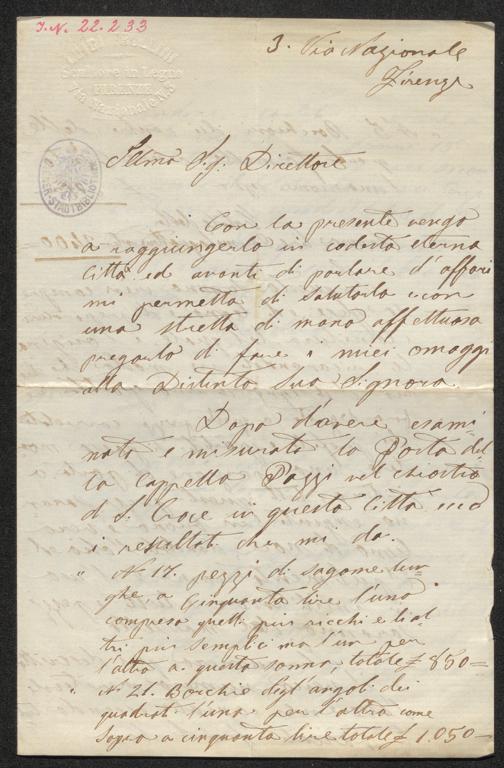 I.N. 22.233
Scultore in Legno
FIRENZE
Via Nazionale N.3
3. Via Nazionale
Firenze
Illmo Sig: Direttore
Con la presente vengo
a raggiungerla in codesta eterna
città ed avanti di parlare d'affari
mi permetta di salutarla e con
una stretta di mano affettuosa
pregarlo di fare i miei omaggi
alla Distinta Sua Signora.
Dopo d'avere esami
nato e misurato la Porta del
la Cappella Pazzi nel chiostro
di S. Croce in questa Città ecco
i resultati che mi da.
" N. 17. pezzi di sagome lun
ghe a Cinquanta lire l'uno
compreso quelli più ricchi e li al
tri più semplici ma l'un per
l'altro a questa somma, totale £ 850=
" N. 21. Borchie degl'angoli dei
quadrati l'una per l'altra come
sopra a cinquanta lire totale £ 1.050=